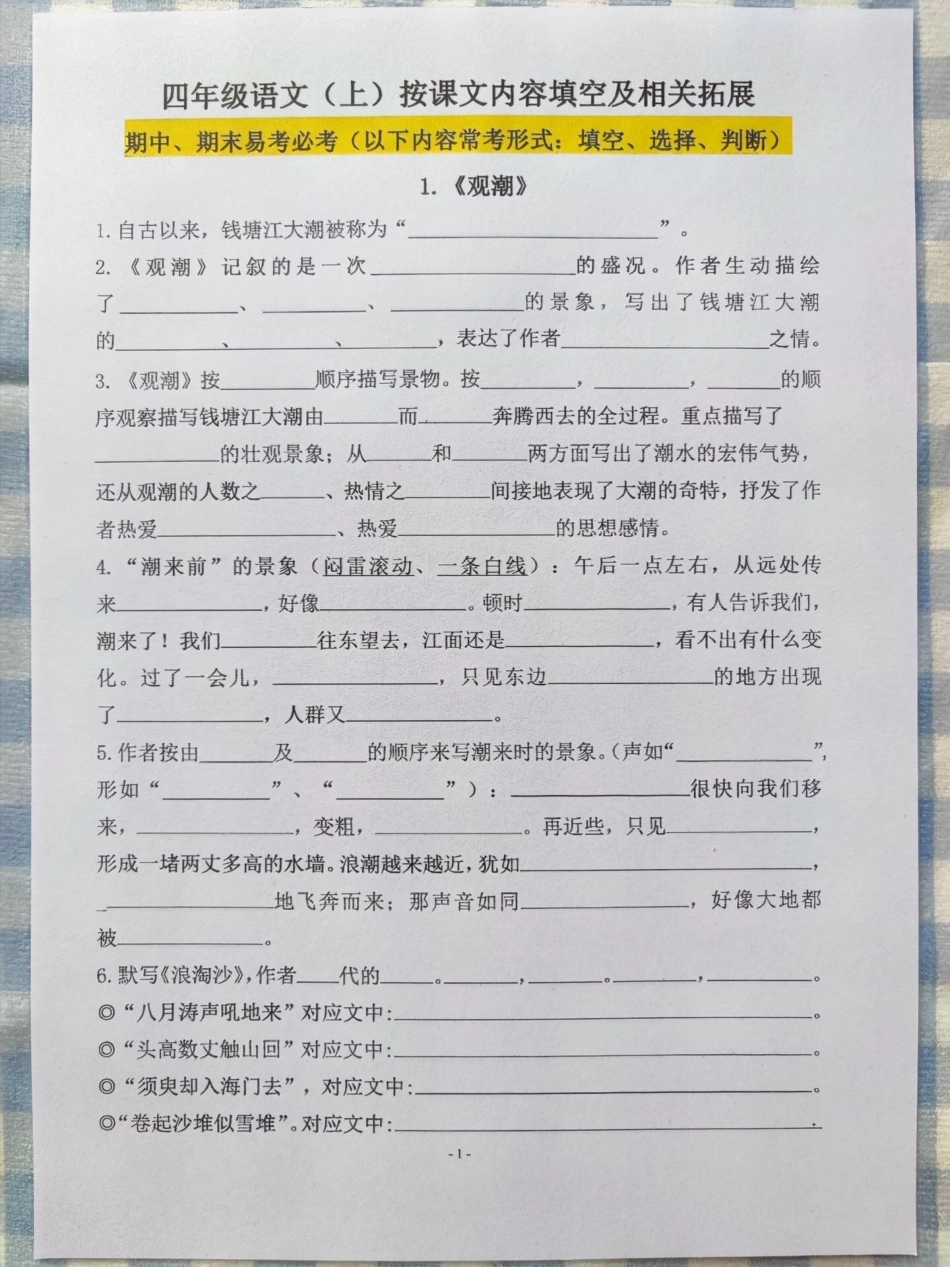 四年级语文（上）按课文内容填空及相关拓展
期中、期末易考必考（以下内容常考形式：填空、选择、判断）
1.《观潮》
1.自古以来，钱塘江大潮被称为“____________”。
2.《观潮》记叙的是一次____________的盛况。作者生动描绘
了________、________、________的景象，写出了钱塘江大潮
的________、________、________，表达了作者____________之情。
3.《观潮》按______顺序描写景物。按______，______，______的顺
序观察描写钱塘江大潮由______而______奔腾西去的全过程。重点描写了
________的壮观景象；从______和______两方面写出了潮水的宏伟气势，
还从观潮的人数之______、热情之______间接地表现了大潮的奇特，抒发了作
者热爱____________、热爱____________的思想感情。
4.“潮来前”的景象（闷雷滚动、一条白线）：午后一点左右，从远处传
来__________，好像__________。顿时__________，有人告诉我们，
潮来了！我们______往东望去，江面还是__________，看不出有什么变
化。过了一会儿，__________，只见东边__________的地方出现
了__________，人群又__________。
5.作者按由______及______的顺序来写潮来时的景象。（声如“________”，
形如“________”、“________”）：____________很快向我们移
来，__________，变粗，__________。再近些，只见__________，
形成一堵两丈多高的水墙。浪潮越来越近，犹如____________________，
____________地飞奔而来；那声音如同____________，好像大地都
被__________。
6.默写《浪淘沙》，作者____代的____。______，______。______，________。
◎“八月涛声吼地来”对应文中:______________________________。
◎“头高数丈触山回”对应文中:______________________________。
◎“须臾却入海门去”，对应文中:____________________________。
◎“卷起沙堆似雪堆”。对应文中:______________________________.
- 1 -